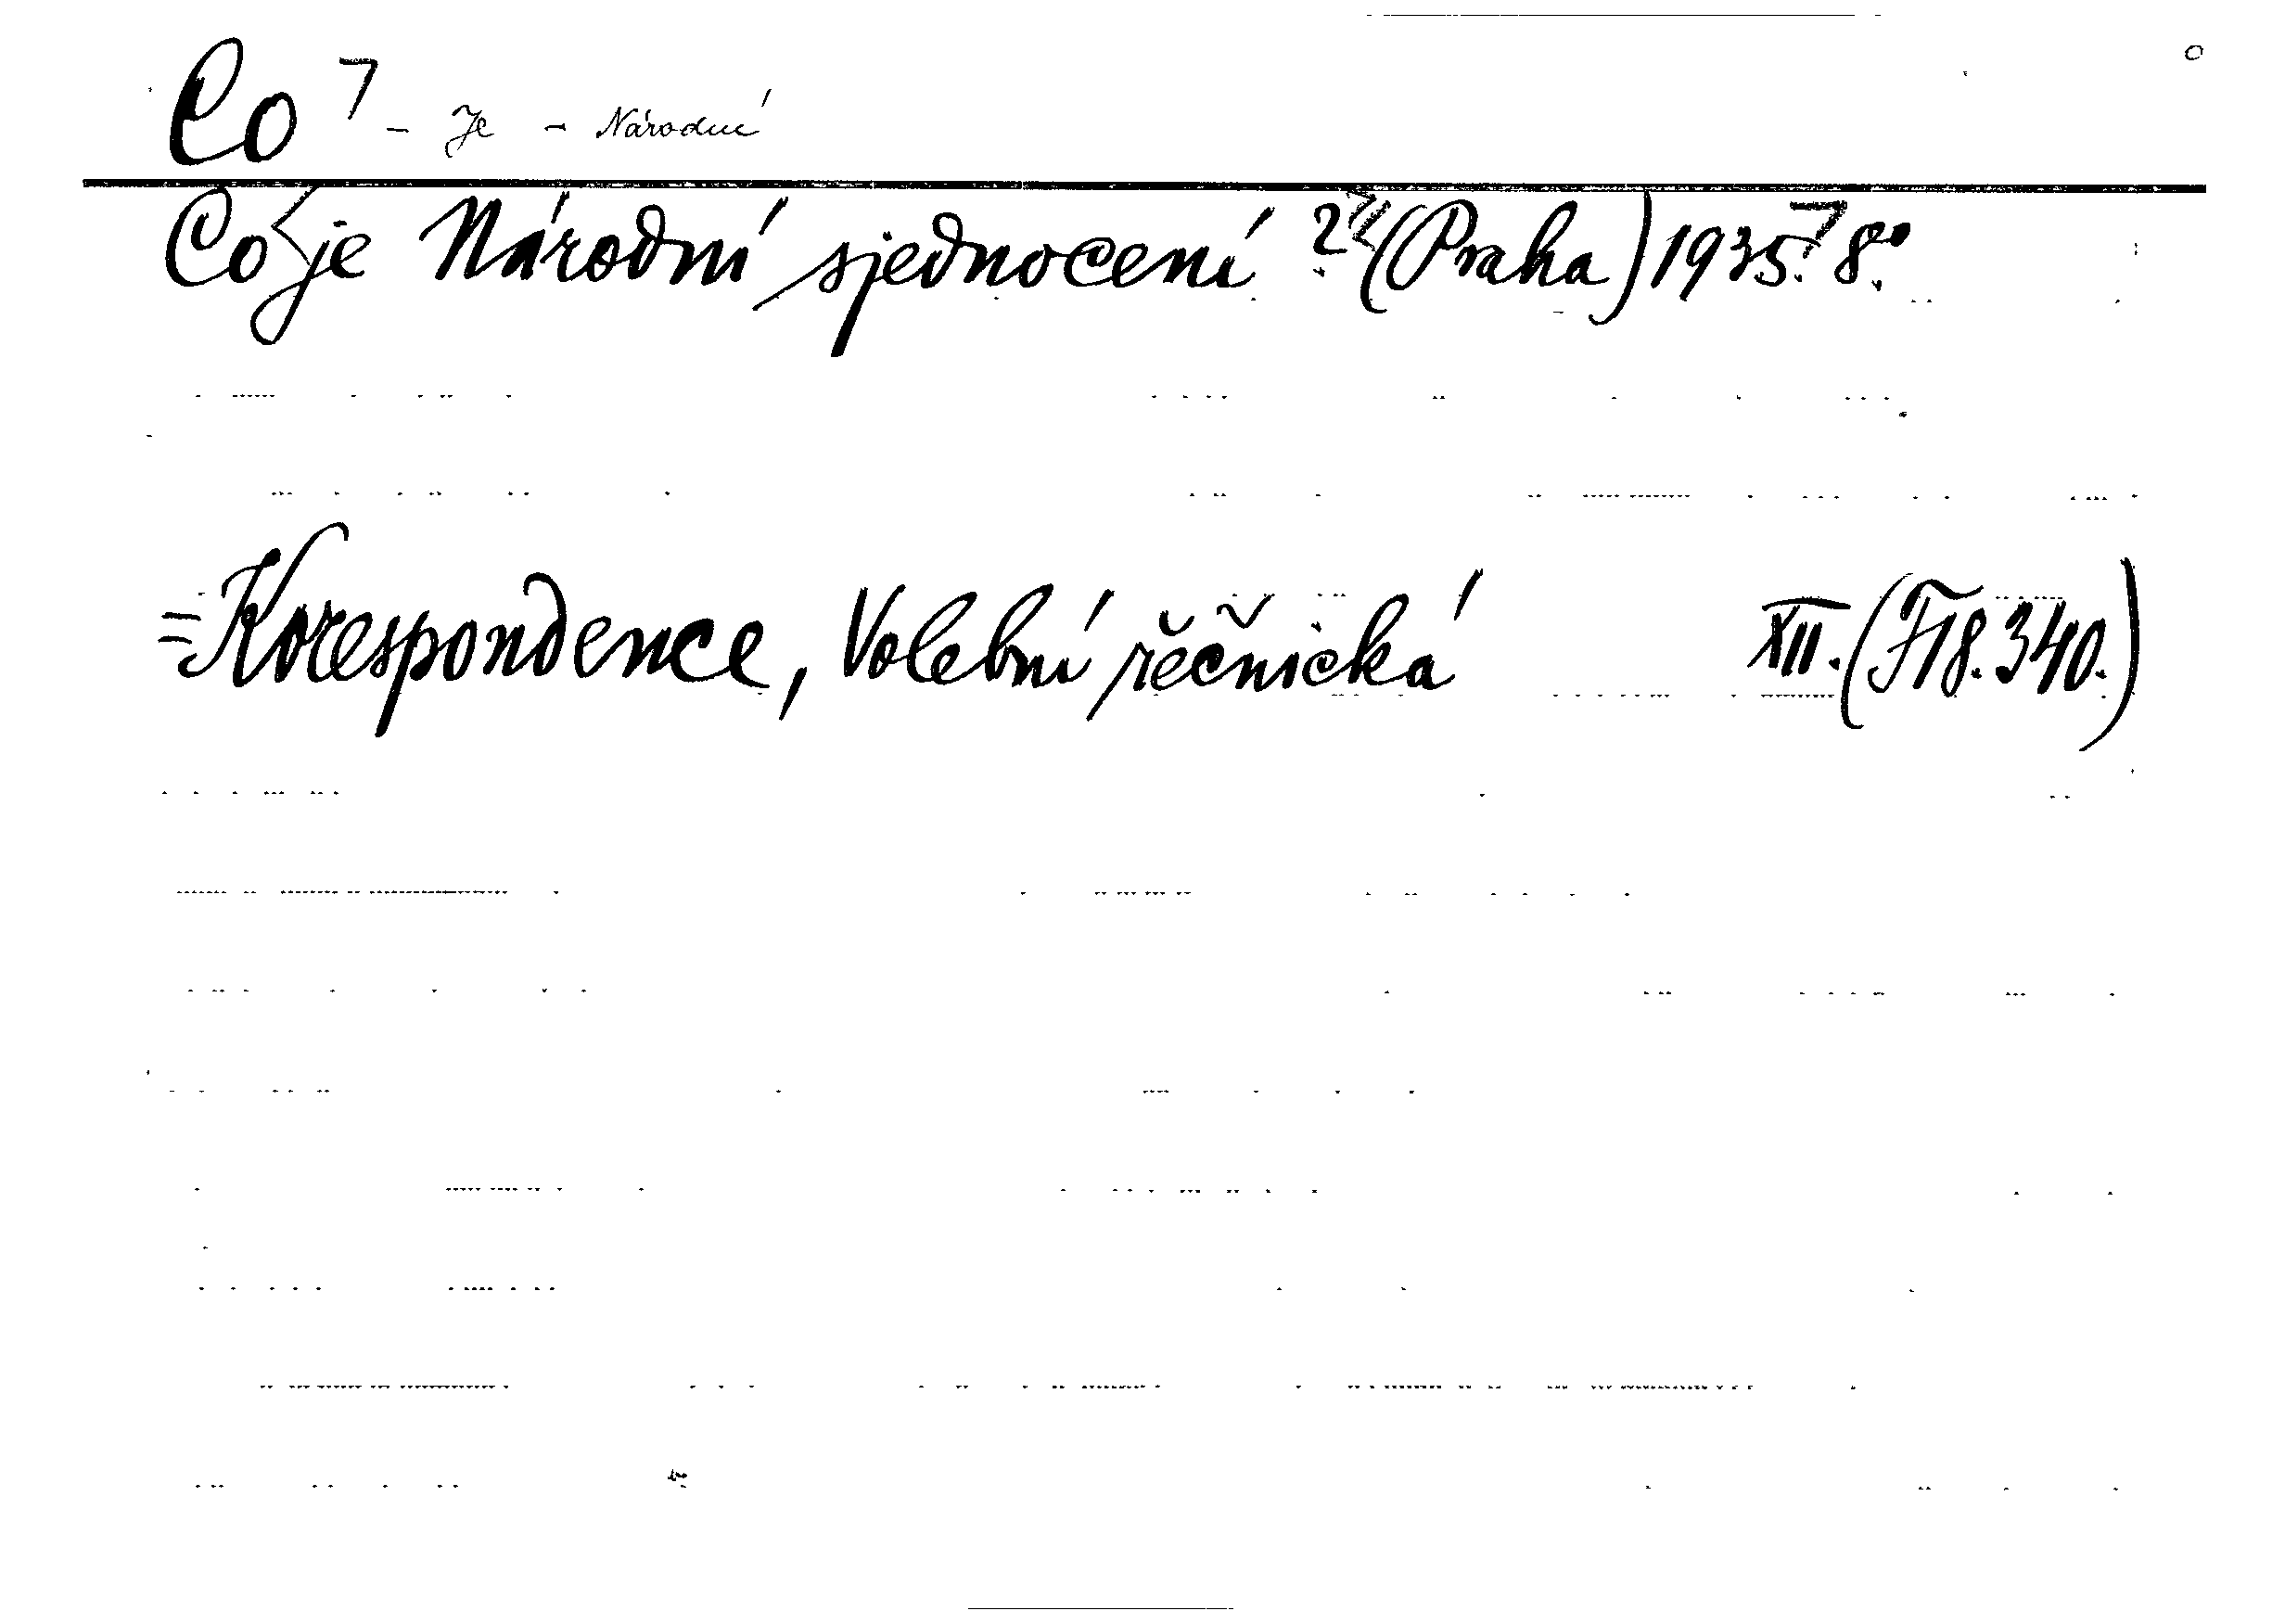 Co - Je - Národní
Co je Národní sjednocení? (Praha) 1935. 8°.
=Korespondence, Volební řěčnická XII. (F18.340.)